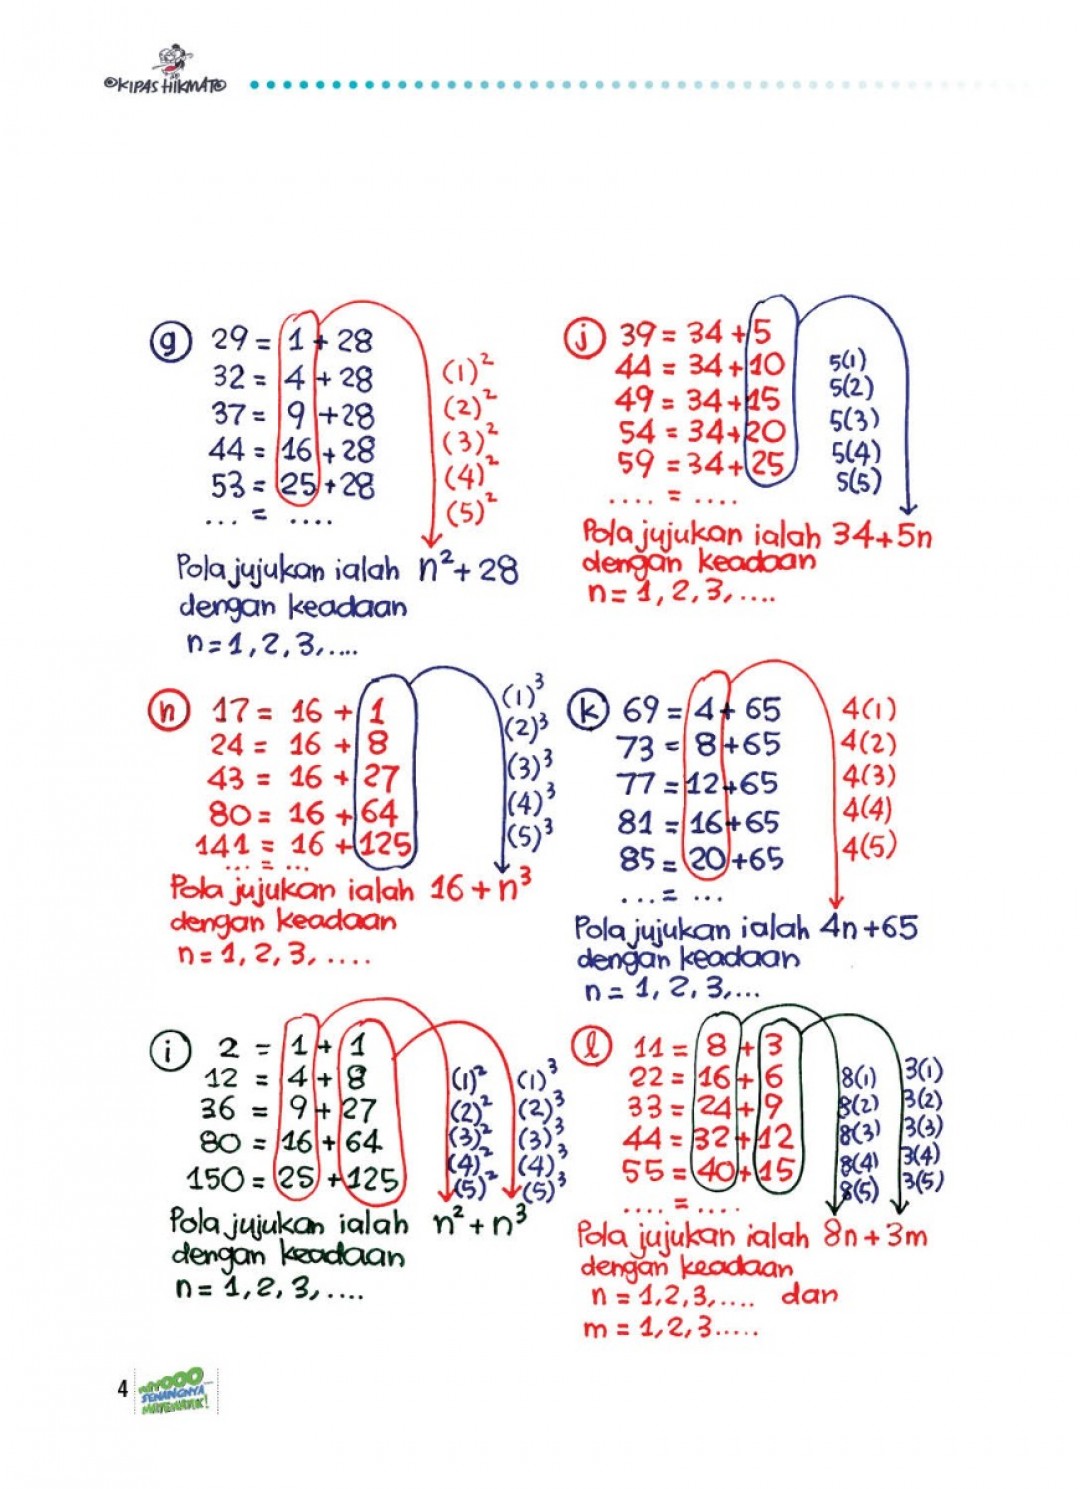 ©KIPAS HIKMAT®
g 29 = 1 + 28
32 = 4 + 28
37 = 9 + 28
44 = 16 + 28
53 = 25 + 28
... = ....
(1)²
(2)²
(3)²
(4)²
(5)²
Pola jujukan ialah n² + 28
dengan keadaan
n = 1, 2, 3, ....
h 17 = 16 + 1
24 = 16 + 8
43 = 16 + 27
80 = 16 + 64
141 = 16 + 125
... = ...
(1)³
(2)³
(3)³
(4)³
(5)³
Pola jujukan ialah 16 + n³
dengan keadaan
n = 1, 2, 3, ....
i 2 = 1 + 1
12 = 4 + 8
36 = 9 + 27
80 = 16 + 64
150 = 25 + 125
(1)² (1)³
(2)² (2)³
(3)² (3)³
(4)² (4)³
(5)² (5)³
Pola jujukan ialah n² + n³
dengan keadaan
n = 1, 2, 3, ....
j 39 = 34 + 5
44 = 34 + 10
49 = 34 + 15
54 = 34 + 20
59 = 34 + 25
.... = ....
5(1)
5(2)
5(3)
5(4)
5(5)
Pola jujukan ialah 34 + 5n
dengan keadaan
n = 1, 2, 3, ....
k 69 = 4 + 65
73 = 8 + 65
77 = 12 + 65
81 = 16 + 65
85 = 20 + 65
... = ...
4(1)
4(2)
4(3)
4(4)
4(5)
Pola jujukan ialah 4n + 65
dengan keadaan
n = 1, 2, 3, ...
l 11 = 8 + 3
22 = 16 + 6
33 = 24 + 9
44 = 32 + 12
55 = 40 + 15
.... = ....
8(1) 3(1)
8(2) 3(2)
8(3) 3(3)
8(4) 3(4)
8(5) 3(5)
Pola jujukan ialah 8n + 3m
dengan keadaan
n = 1, 2, 3, .... dan
m = 1, 2, 3 .....
4
SENANGNYA
MATEMATIK!